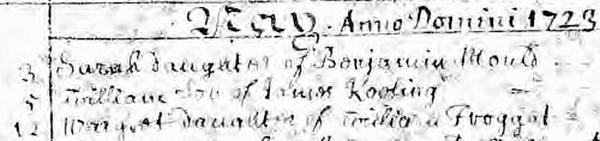 May Anno Domini 1723
3 Sarah daughter of Benjamin Mould
5 William Son of James Kooling
12 Margret daughter of William Froggat